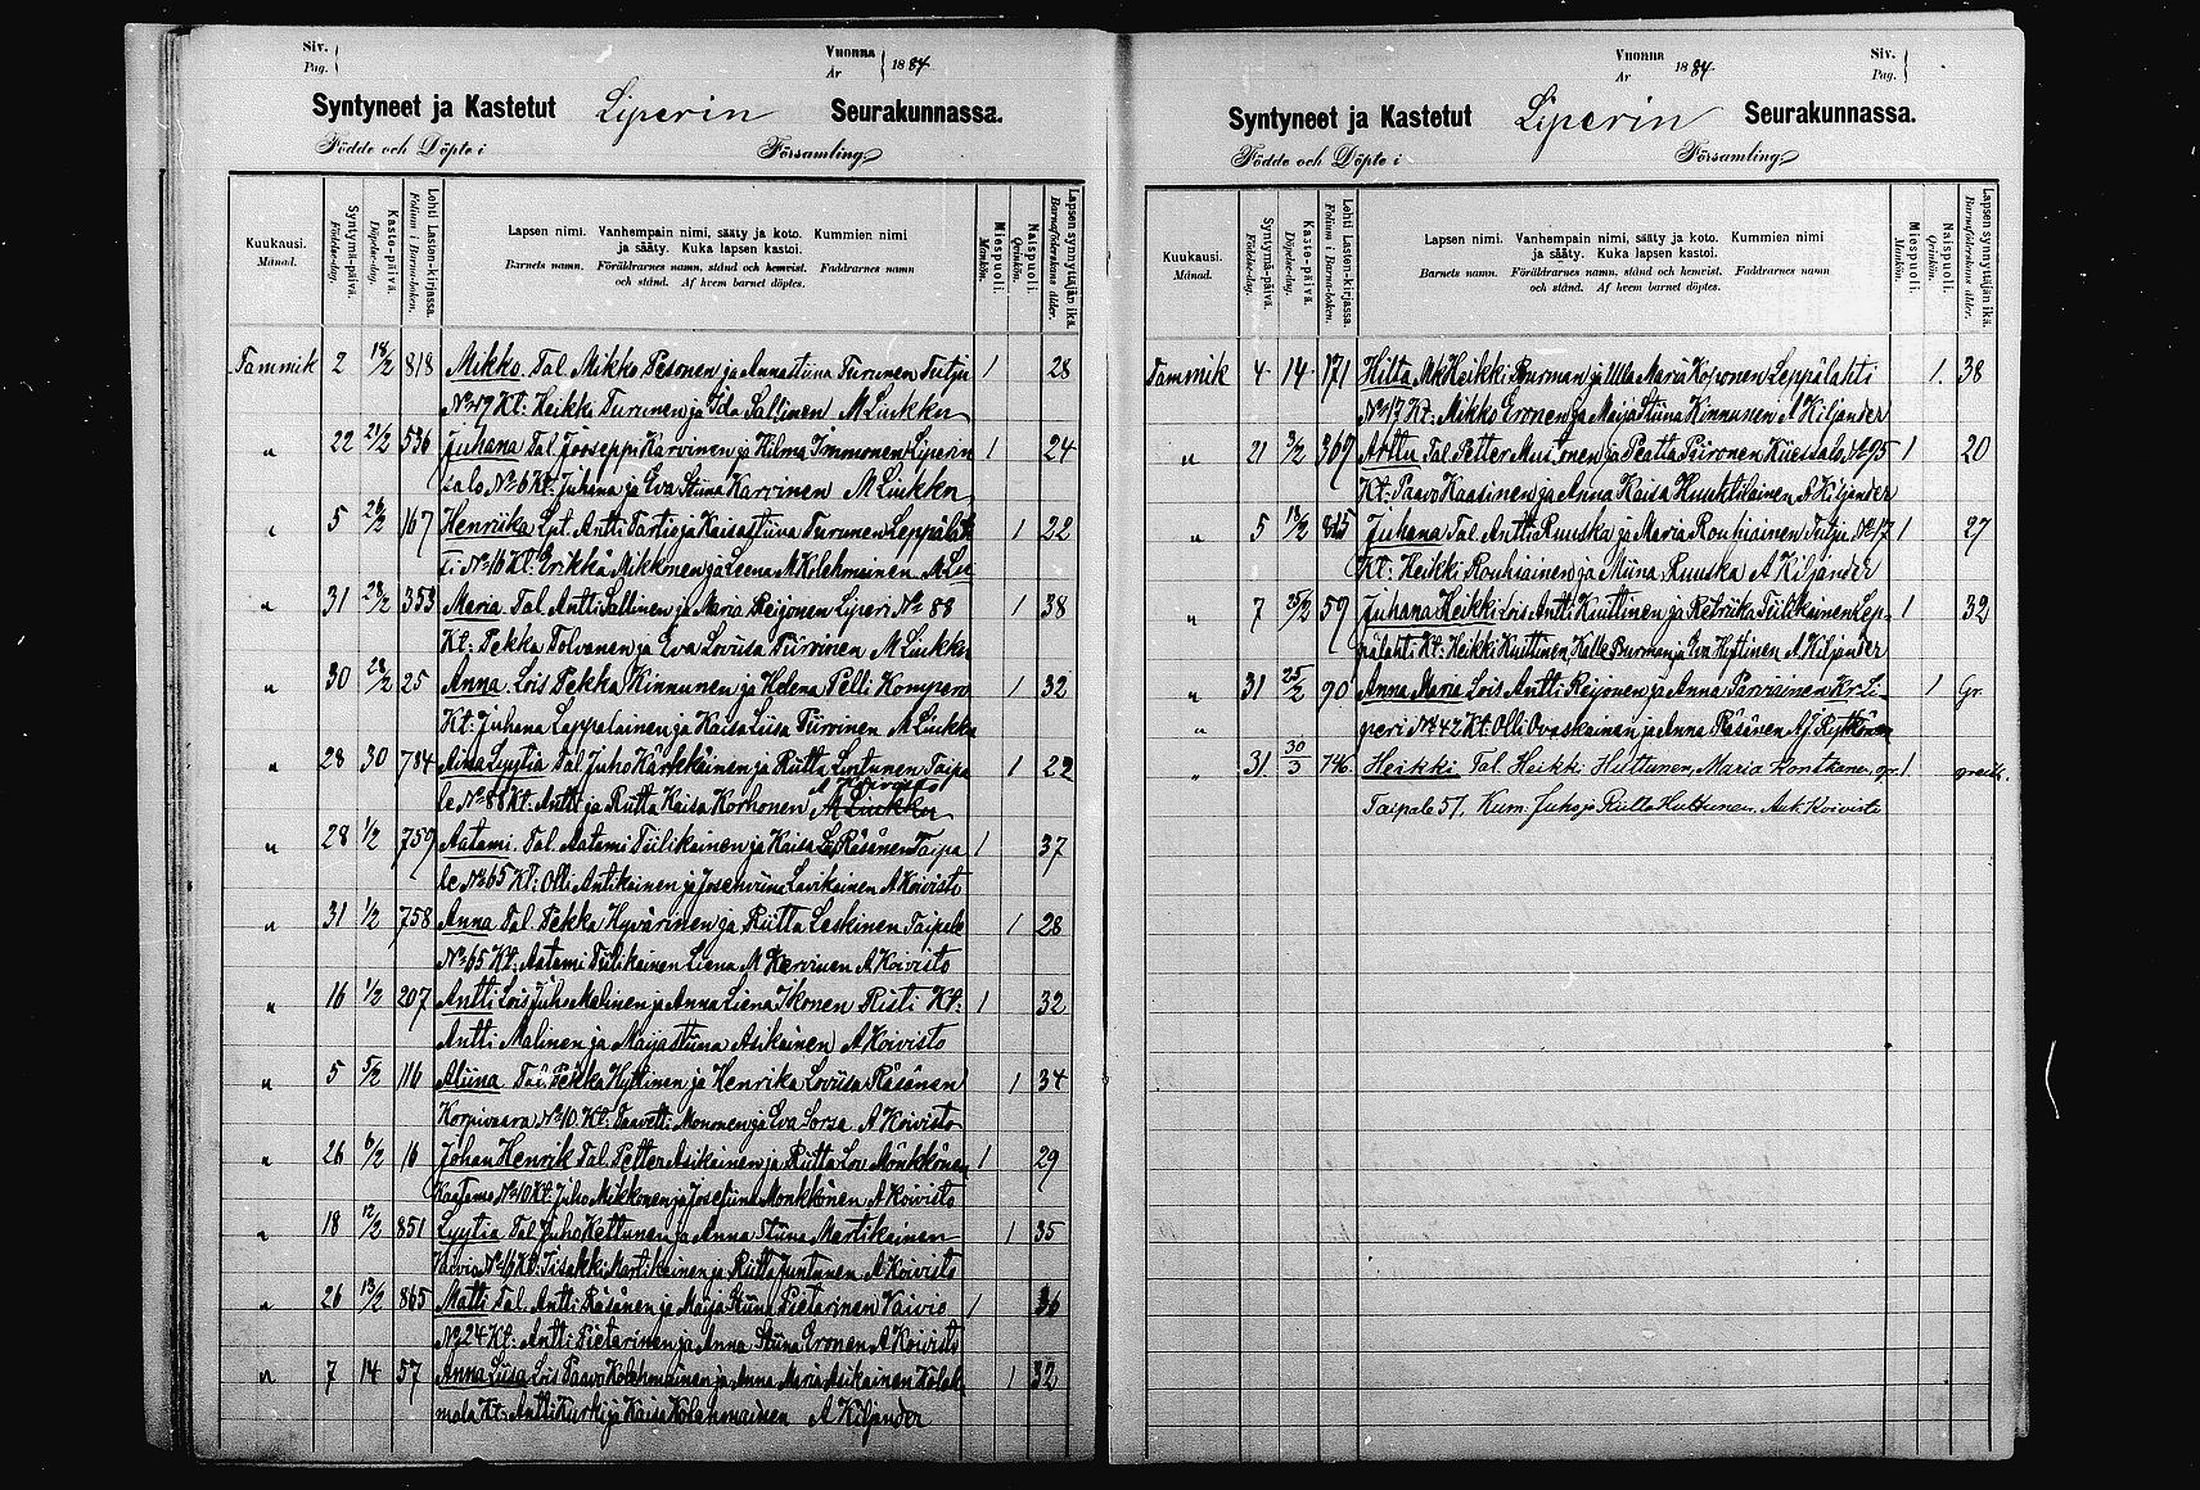 Siv.
Pag.
Vuonna
År
1884.
Syntyneet ja Kastetut Liperin Seurakunnassa.
Födde och Döpte i Församling
Kuukausi.
Månad.
Syntymä-päivä.
Födelse-dag.
Kaste-päivä.
Döpelse-dag.
Lehti Lasten-kirjassa.
Folium i Barna-boken.
Lapsen nimi. Vanhempain nimi, sääty ja koto. Kummien nimi
ja sääty. Kuka lapsen kastoi.
Barnets namn. Föräldrarnes namn, stånd och hemvist. Faddrarnes namn
och stånd. Af hvem barnet döptes.
Miespuoli.
Mankön.
Naispuoli.
Qvinkön.
Lapsen synnyttäjän ikä.
Barnaföderskans ålder.
Tammik 2 18/2 818 Mikko. Tal. Mikko Pesonen ja Annastiina Turunen Tutju 1 28
No 49 Kt: Heikki Turunen ja Ida Sallinen M Liukku
" 22 21/2 536 Juhana Tal. Jooseppi Karvinen ja Hilma Immonen Liperin 1 24
salo No 6 Kt: Juhana ja Eva Stiina Karvinen M Liukku
" 5 28/2 167 Henriika Lpt. Antti Partio ja Kaisastiina Turunen Leppälah 1 22
ti No 16 Kt: Erikka Mikkonen ja Leena M Kolehmainen M Liu
" 31 28/2 353 Maria. Tal. Antti Sallinen ja Maria Reijonen Liperi No 88 1 38
Kt: Pekka Tolvanen ja Eva Loviisa Tiirvinen M Liukku
" 30 28/2 25 Anna. Lois Pekka Kinnunen ja Helena Pelli Kompero 1 32
Kt: Juhana Leppalainen ja Kaisa Liisa Tiirvinen M Liukku
" 28 30 784 Aina Lyytia Tal Juho Kärkkäinen ja Riitta Lintunen Taipa 1 22
A Koivisto
le No 88 Kt: Antti ja Riitta Kaisa Korhonen M Liukku
" 28 1/2 759 Aatami. Tal. Aatami Tiilikainen ja Kaisa Räsänen Taipa 1 37
le No 65 Kt: Olli Antikainen ja Josehviina Lavikainen A Koivisto
" 31 1/2 758 Anna Tal. Pekka Hyvärinen ja Riitta Leskinen Taipale 1 28
No 65 Kt: Aatami Tiilikainen Liena M Kervinen A Koivisto
" 16 1/2 207 Antti Lois Juho Malinen ja Anna Liena Ikonen Risti Kt: 1 32
Antti Malinen ja Maijastiina Asikainen A Koivisto
" 5 5/2 116 Aliina Tal. Pekka Hyttinen ja Henrika Loviisa Räsänen 1 34
Korpivaara No 10. Kt: Taavetti Mononen ja Eva Sorsa A Koivisto
" 26 6/2 16 Johan Henrik Tal. Petter Asikainen ja Riitta Lov Mönkkönen 1 29
Kaatamo No 10 Kt: Juho Mikkonen ja Josefiina Monkkönen A Koivisto
" 18 12/2 851 Lyytia Tal Juho Kettunen ja Anna Stiina Martikainen 1 35
Vaivio No 16 Kt: Iisakki Martikainen ja Riitta Juntunen A Koivisto
" 26 13/2 865 Matti Tal. Antti Räsänen ja Maija Stiina Pietarinen Vaivio 1 36
No 24 Kt: Antti Pietarinen ja Anna Stiina Eronen A Koivisto
" 7 14 57 Anna Liisa Lois Paavo Kolehmainen ja Anna Maria Asikainen Kôleh 1 32
mala Kt: Antti Kurki ja Kaisa Kolehmainen A Kiljander
Vuonna
År
1884.
Siv.
Pag.
Syntyneet ja Kastetut Liperin Seurakunnassa.
Födde och Döpte i Församling
Kuukausi.
Månad.
Syntymä-päivä.
Födelse-dag.
Kaste-päivä.
Döpelse-dag.
Lehti Lasten-kirjassa.
Folium i Barna-boken.
Lapsen nimi. Vanhempain nimi, sääty ja koto. Kummien nimi
ja sääty. Kuka lapsen kastoi.
Barnets namn. Föräldrarnes namn, stånd och hemvist. Faddrarnes namn
och stånd. Af hvem barnet döptes.
Miespuoli.
Mankön.
Naispuoli.
Qvinkön.
Lapsen synnyttäjän ikä.
Barnaföderskans ålder.
Tammik 4 14 171 Hilta Mk Heikki Purman ja Ulla Maria Koponen Leppälahti 1. 38
No 17 Kt: Mikko Eronen ja Maija Stiina Kinnunen A Kiljander
" 21 3/2 369 Arttu Tal Petter Mustonen ja Peatta Piironen Kiiessalo No 95 1 20
Kt: Paavo Kaasinen ja Anna Kaisa Huuhtilainen A Kiljander
" 5 18/2 815 Juhana Tal. Antti Ruuska ja Maria Rouhiainen Tutju No 17 1 27
Kt: Heikki Rouhiainen ja Miina Ruuska A Kiljander
" 7 25/2 59 Juhana Heikki Lois Antti Kuittinen ja Retriika Tiilikainen Lep= 1 32
pälahti Kt: Heikki Kuittinen, Kalle Purman ja Eva Hyttinen A Kiljander
" 31 25/2 90 Anna Maria Lois Antti Reijonen ja Anna Parviainen Kr. Li- 1 Gr
" peri No 42 Kt: Olli Ovaskainen ja Anna Räsänen A J. Rytkönen
" 31 30/3 746 Heikki Tal. Heikki Huttunen, Maria Kontkanen, gr. 1 greek.
Taipale 51. Kum: Juho ja Riitta Huttunen, Ant. Koivisto